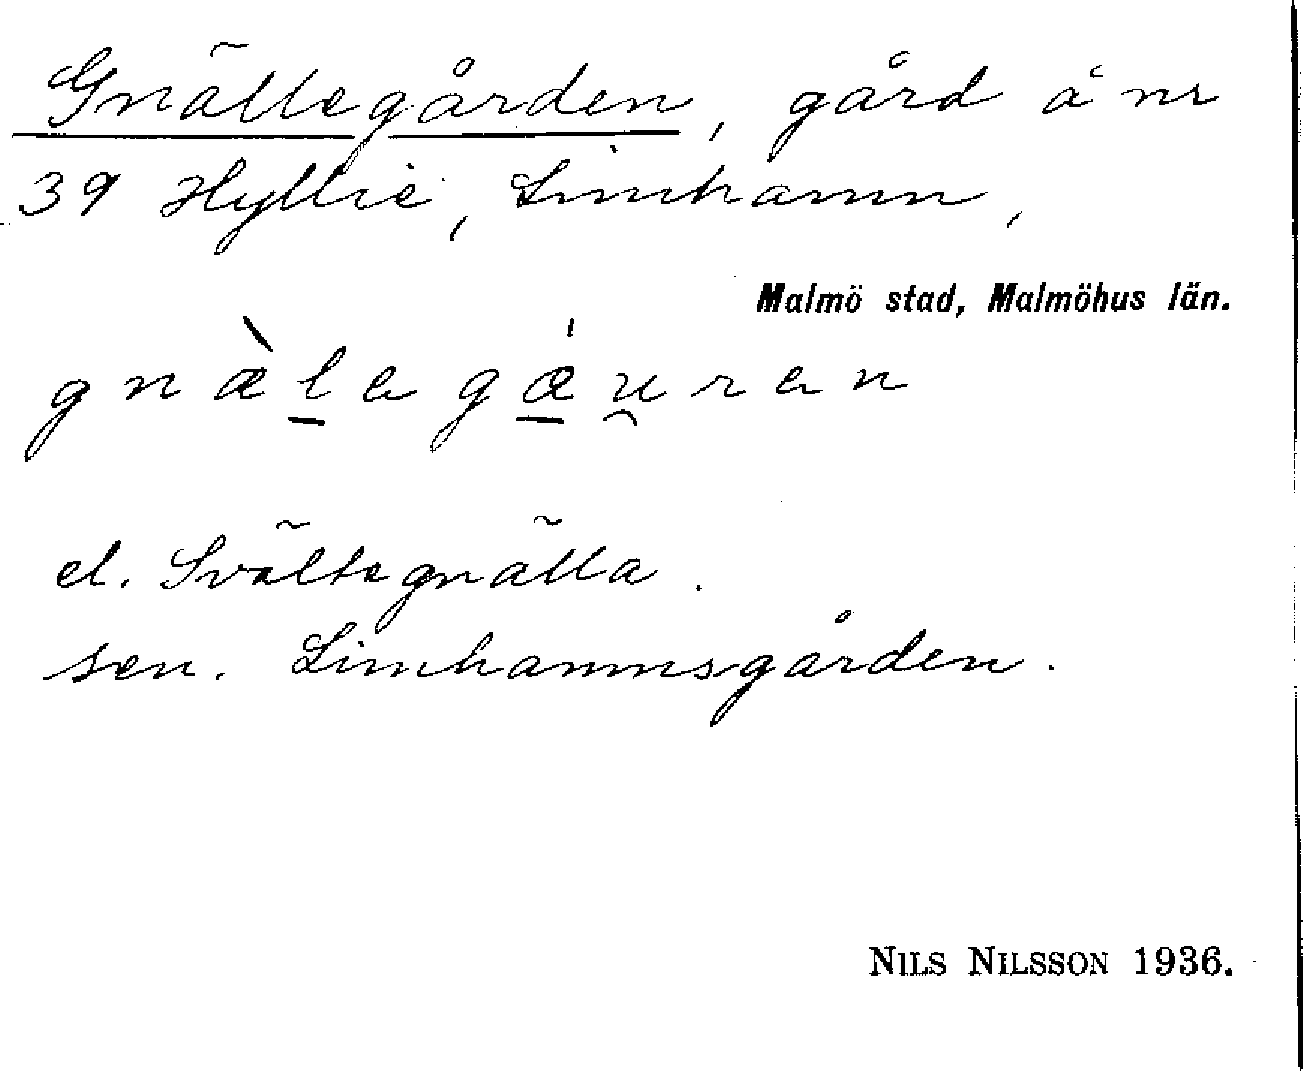 Gnällegården, gård å nr
39 Hyllie, Limhamn,
Malmö stad, Malmöhus län.
gnæ̀l̲ega̲ǽu̯ran
el. Svältegnälla.
sen. Limhamnsgården.
NILS NILSSON 1936.